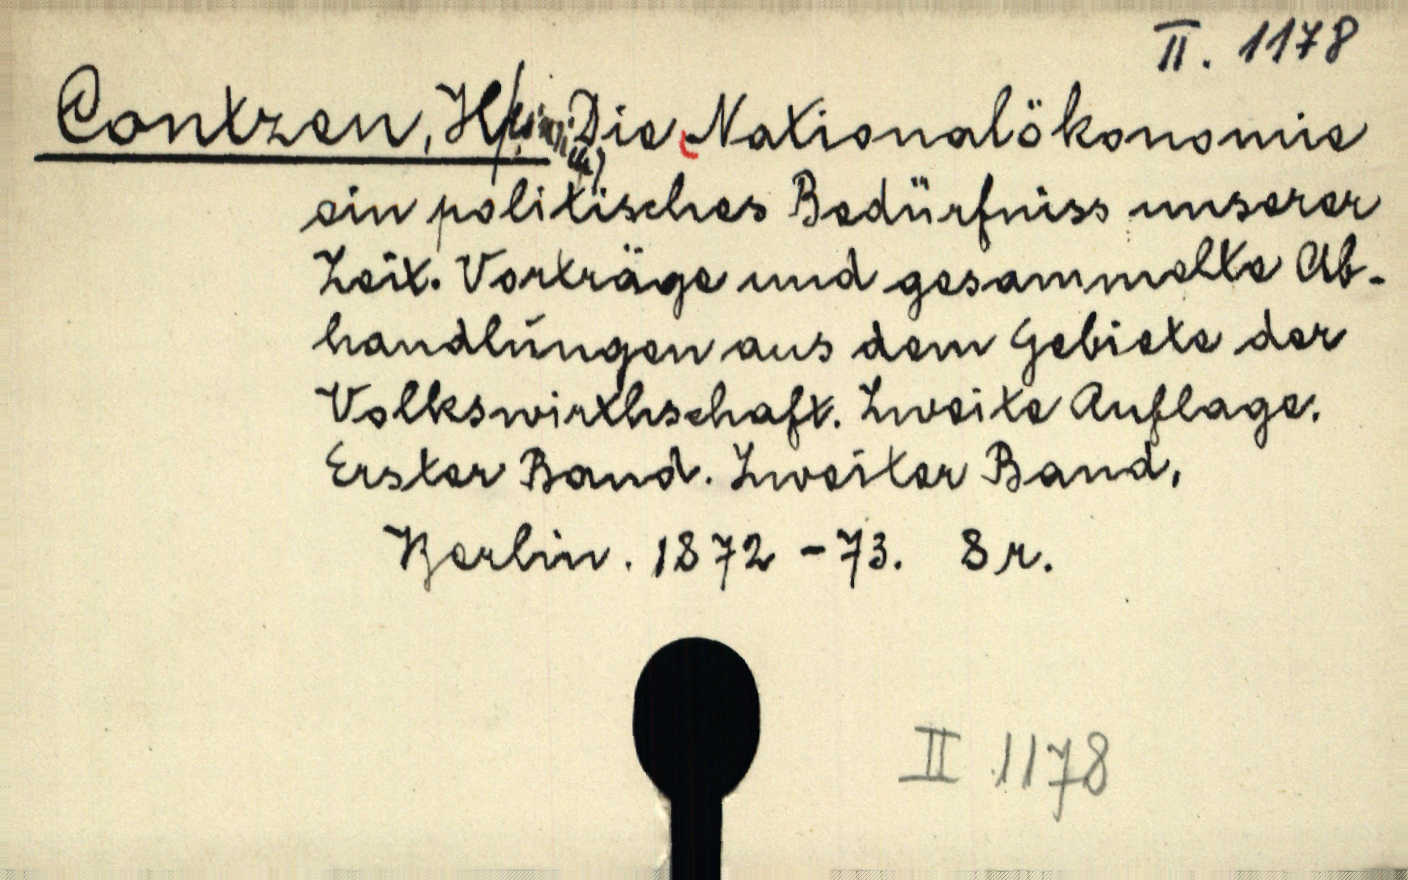 II. 1178
Contzen, H(einrich) Die Nationalökonomie
ein politisches Bedürfniss unserer
Zeit. Vorträge und gesammelte Ab-
handlungen aus dem Gebiete der
Volkswirthschaft. Zweite Auflage.
Erster Band. Zweiter Band,
Berlin. 1872-73. 8r.
II 1178